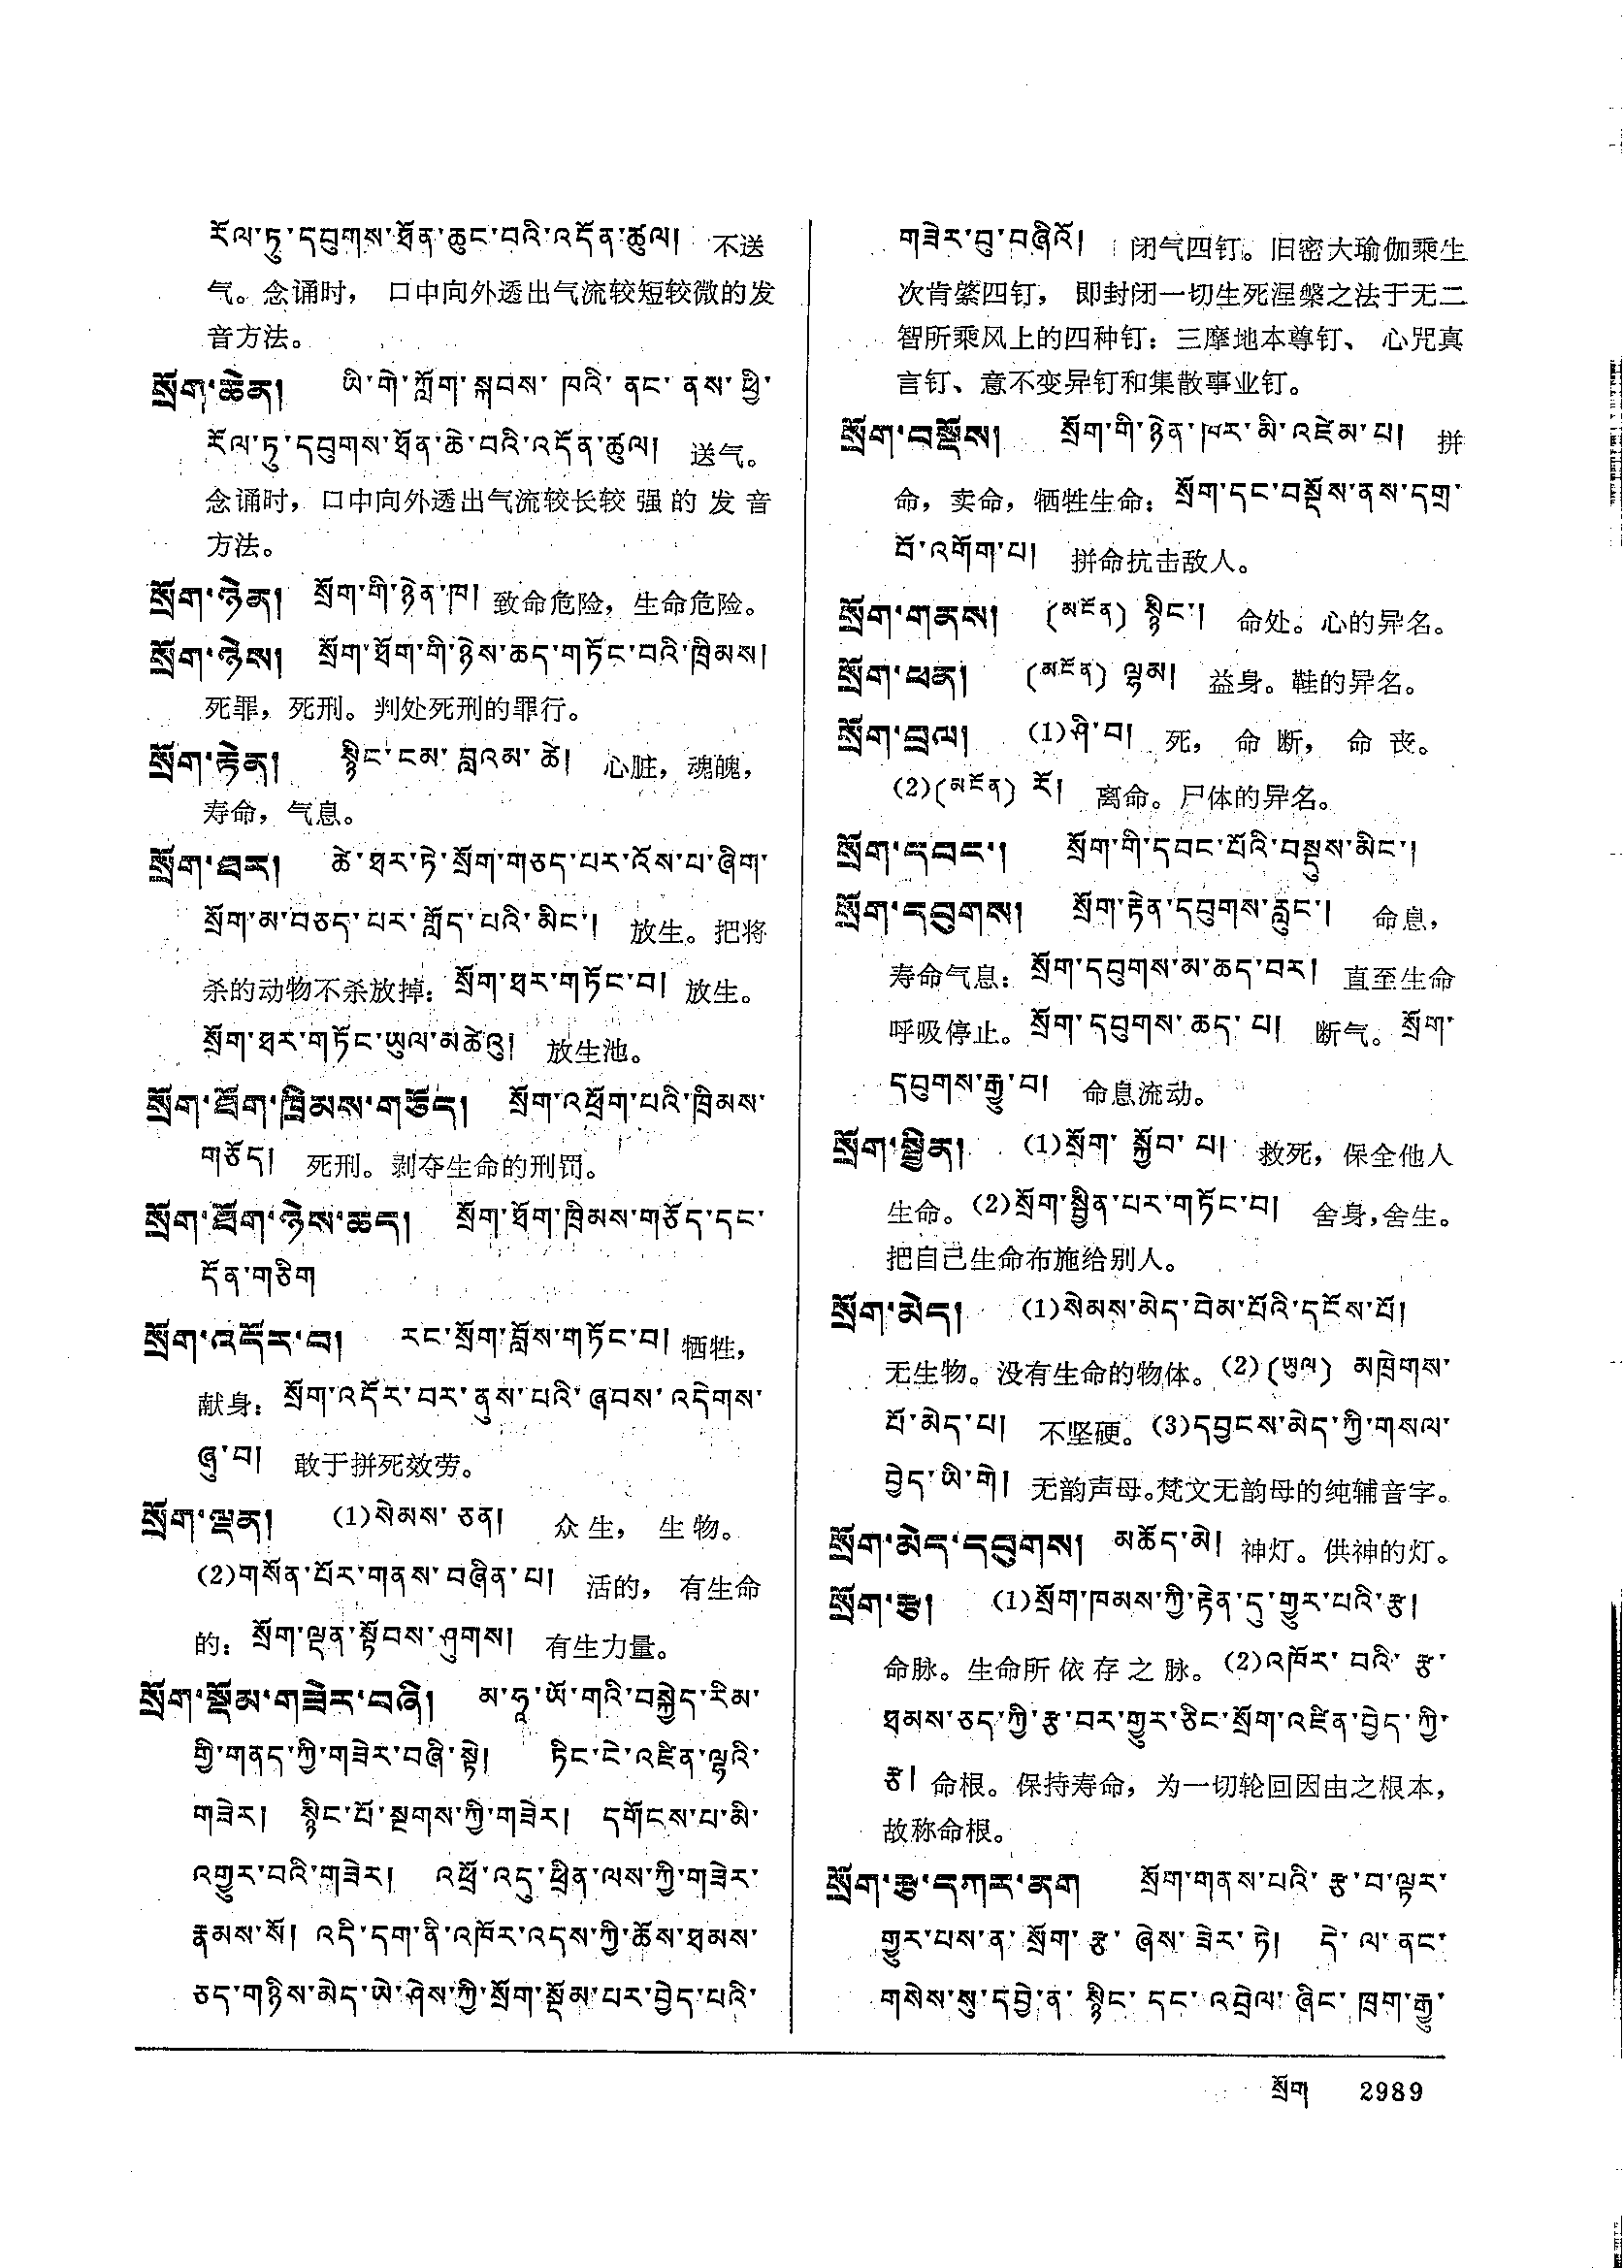 རོལ་ཏུ་དབུགས་ཐོན་ཆུང་བའི་འདོན་ཚུལ། 不送
气。念诵时， 口中向外透出气流较短较微的发
音方法。
སྲོག་ཆེན། ཡི་གེ་ཀློག་སྐབས་ཁའི་ནང་ནས་ཕྱི་
རོལ་ཏུ་དབུགས་ཐོན་ཆེ་བའི་འདོན་ཚུལ། 送气。
念诵时，口中向外透出气流较长较强的发音
方法。
སྲོག་ཉེན། སྲོག་གི་ཉེན་ཁ། 致命危险，生命危险。
སྲོག་ཉེས། སྲོག་ཐོག་གི་ཉེས་ཆད་གཏོང་བའི་ཁྲིམས།
死罪，死刑。判处死刑的罪行。
སྲོག་རྟེན། སྙིང་ངམ་བླའམ་ཚེ། 心脏，魂魄，
寿命，气息。
སྲོག་ཐར། ཚེ་ཐར་ཏེ་སྲོག་གཅད་པར་འོས་པ་ཞིག་
སྲོག་མ་བཅད་པར་གློད་པའི་མིང་། 放生。把将
杀的动物不杀放掉：སྲོག་ཐར་གཏོང་བ། 放生。
སྲོག་ཐར་གཏོང་ཡུལ་མཚེའུ། 放生池。
སྲོག་ཐོག་ཁྲིམས་གཅོད། སྲོག་འཕྲོག་པའི་ཁྲིམས་
གཅོད། 死刑。剥夺生命的刑罚。
སྲོག་ཐོག་ཉེས་ཆད། སྲོག་ཐོག་ཁྲིམས་གཅོད་དང་
དོན་གཅིག
སྲོག་འདོར་བ། རང་སྲོག་བློས་གཏོང་བ། 牺牲，
献身：སྲོག་འདོར་བར་ནུས་པའི་ཞབས་འདེགས་
ཞུ་བ། 敢于拼死效劳。
སྲོག་ལྡན། (1)སེམས་ཅན། 众生， 生物。
(2)གསོན་པོར་གནས་བཞིན་པ། 活的， 有生命
的：སྲོག་ལྡན་སྟོབས་ཤུགས། 有生力量。
སྲོག་སྡོམ་གཟེར་བཞི། མ་ཧཱ་ཡོ་གའི་བསྐྱེད་རིམ་
གྱི་གནད་ཀྱི་གཟེར་བཞི་སྟེ། ཏིང་ངེ་འཛིན་ལྷའི་
གཟེར། སྙིང་པོ་སྔགས་ཀྱི་གཟེར། དགོངས་པ་མི་
འགྱུར་བའི་གཟེར། འཕྲོ་འདུ་ཕྲིན་ལས་ཀྱི་གཟེར་
རྣམས་སོ། འདི་དག་ནི་འཁོར་འདས་ཀྱི་ཆོས་ཐམས་
ཅད་གཉིས་མེད་ཡེ་ཤེས་ཀྱི་སྲོག་སྡོམ་པར་བྱེད་པའི་
གཟེར་བུ་བཞིའོ། 闭气四钉。旧密大瑜伽乘生
次肯綮四钉， 即封闭一切生死涅槃之法于无二
智所乘风上的四种钉：三摩地本尊钉、 心咒真
言钉、意不变异钉和集散事业钉。
སྲོག་བསྡོས། སྲོག་གི་ཉེན་ཁར་མི་འཛེམ་པ། 拼
命，卖命，牺牲生命：སྲོག་དང་བསྡོས་ནས་དགྲ་
བོ་འགོག་པ། 拼命抗击敌人。
སྲོག་གནས། (མངོན) སྙིང་། 命处。心的异名。
སྲོག་ཕན། (མངོན) ལྷམ། 益身。鞋的异名。
སྲོག་བྲལ། (1)ཤི་བ། 死， 命断， 命丧。
(2)(མངོན) རོ། 离命。尸体的异名。
སྲོག་དབང་། སྲོག་གི་དབང་པོའི་བསྡུས་མིང་།
སྲོག་དབུགས། སྲོག་རྟེན་དབུགས་རླུང་། 命息，
寿命气息：སྲོག་དབུགས་མ་ཆད་བར། 直至生命
呼吸停止。སྲོག་དབུགས་ཆད་པ། 断气。སྲོག་
དབུགས་རྒྱུ་བ། 命息流动。
སྲོག་སྦྱིན། (1)སྲོག་སྐྱོབ་པ། 救死，保全他人
生命。(2)སྲོག་སྦྱིན་པར་གཏོང་བ། 舍身,舍生。
把自己生命布施给别人。
སྲོག་མེད། (1)སེམས་མེད་བེམ་པོའི་དངོས་པོ།
无生物。没有生命的物体。(2)(ཡུལ) མཁྲེགས་
པོ་མེད་པ། 不坚硬。(3)དབྱངས་མེད་ཀྱི་གསལ་
བྱེད་ཡི་གེ། 无韵声母。梵文无韵母的纯辅音字。
སྲོག་མེད་དབུགས། མཆོད་མེ། 神灯。供神的灯。
སྲོག་རྩ། (1)སྲོག་ཁམས་ཀྱི་རྟེན་དུ་གྱུར་པའི་རྩ།
命脉。生命所依存之脉。(2)འཁོར་བའི་རྩ་
ཐམས་ཅད་ཀྱི་རྩ་བར་གྱུར་ཅིང་སྲོག་འཛིན་བྱེད་ཀྱི་
རྩ། 命根。保持寿命，为一切轮回因由之根本，
故称命根。
སྲོག་རྩ་དཀར་ནག སྲོག་གནས་པའི་རྩ་བ་ལྟར་
གྱུར་པས་ན་སྲོག་རྩ་ཞེས་ཟེར་ཏེ། དེ་ལ་ནང་
གསེས་སུ་དབྱེ་ན་སྙིང་དང་འབྲེལ་ཞིང་ཁྲག་རྒྱུ་
སྲོག 2989